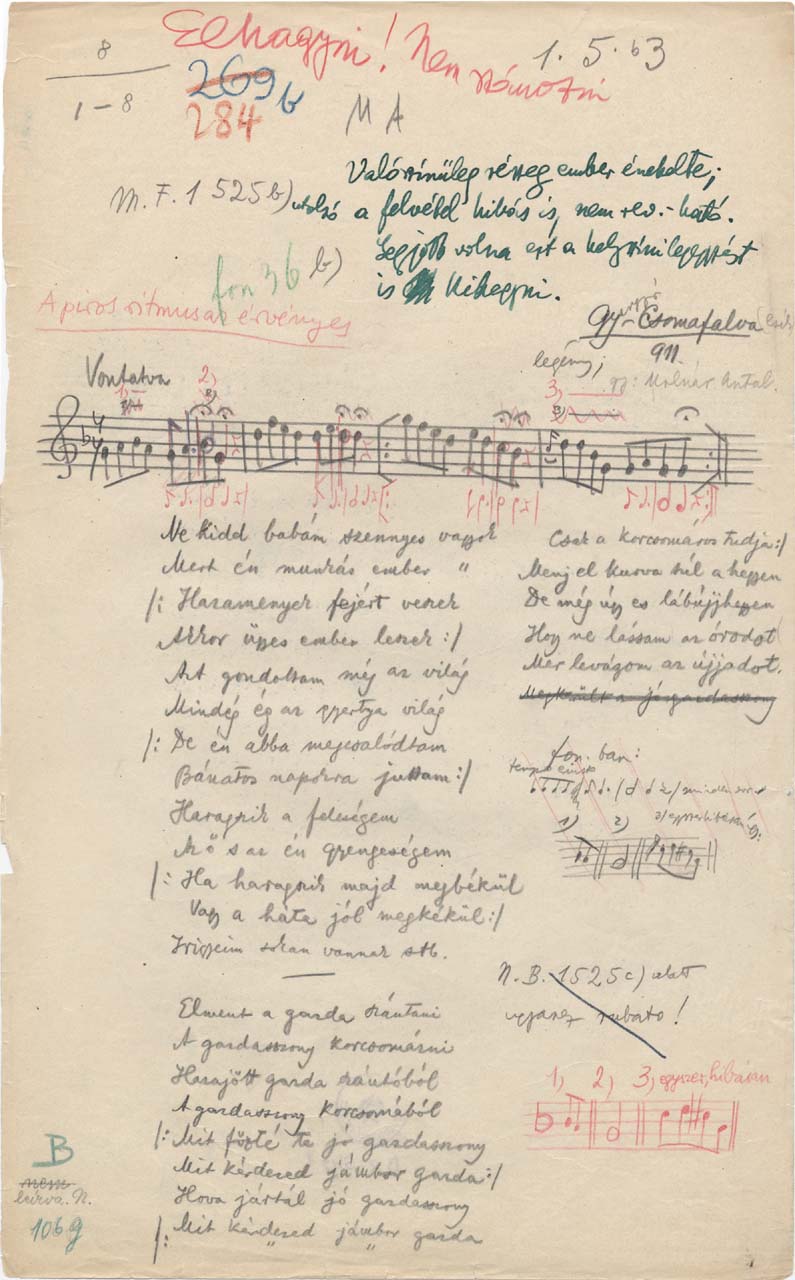 Elhagyni! Nem
1. 5. 63
8
1–8
269 b
284
M A
M. F. 1525 b)
Valószinűleg részeg ember énekelte;
utolsó a felvétel hibás is, nem rev.-ható.
Legjobb volna ezt a
is kihagyni.
fon 36 b)
A piros ritmus az érvényes
Gy-Csomafalva
legény; 911.
gy: Molnár Antal.
Vontatva
1,
2,
3,
Ne kidd babám szennyes vagyok
Mert én munkás ember "
/: Hazamenyek fejért veszek
Akkor üges ember leszek :/
Azt gondoltam még az világ
Mindég ég az gyertya világ
/: De én abba megcsalódtam
Bánatos napokra juttam :/
Haragszik a feleségem
Az ő s az én gyengeségem
/: Ha haragszik majd megbékül
Vagy a háta jól megkékül :/
Irigyeim sokan vannak stb.
Csak a korcsomáros tudja :/
Menj el kurva túl a hegyen
De még úgy es lábújjhegyen
Hogy ne lássam az órodot
Mer levágom az újjadot.
Megkerült a
fon. ban:
1) 2)
Elment a gazda szántani
A gazdasszony korcsomázni
Hazajött gazda szántóból
A gazdasszony korcsomából
/: Mit főzté te jó gazdasszony
Mit kérdezed jámbor gazda :/
Hova jártál jó gazdasszony
/: Mit kérdezed jámbor gazda
N.B. 1525 c) alatt
ugyanez rubato!
1, 2, 3, egyszer, hibásan
B
nem
leírva. N.
106 g